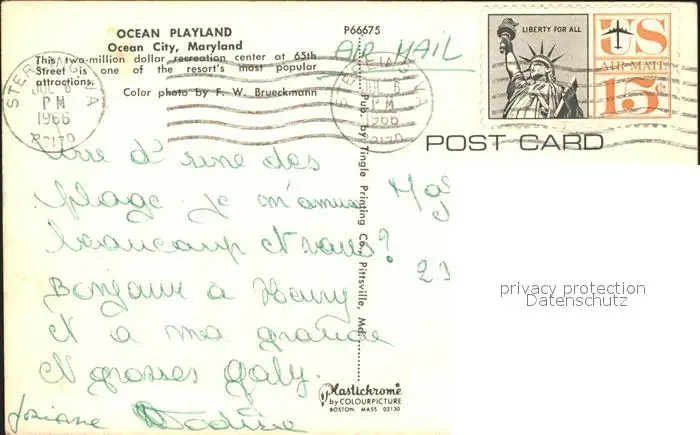 OCEAN PLAYLAND
Ocean City, Maryland
This two-million dollar recreation center at 65th
Street is one of the resort's most popular
attractions.
Color photo by F. W. Brueckmann
P66675
AIR MAIL
LIBERTY FOR ALL
US
AIR MAIL
15¢
STERLING, VA
JUL 6
PM
1966
STERLING, VA
JUL 6
PM
1966
POST CARD
Pub. by Tingle Printing Co., Pittsville, Md.
Vue d'une des
plage je m'amuse
beaucoup et vous?
Bonjour à Henry
et a ma grande
et grosses Galy.
Josiane
privacy protection
Datenschutz
Plastichrome®
by COLOURPICTURE
BOSTON, MASS 02130